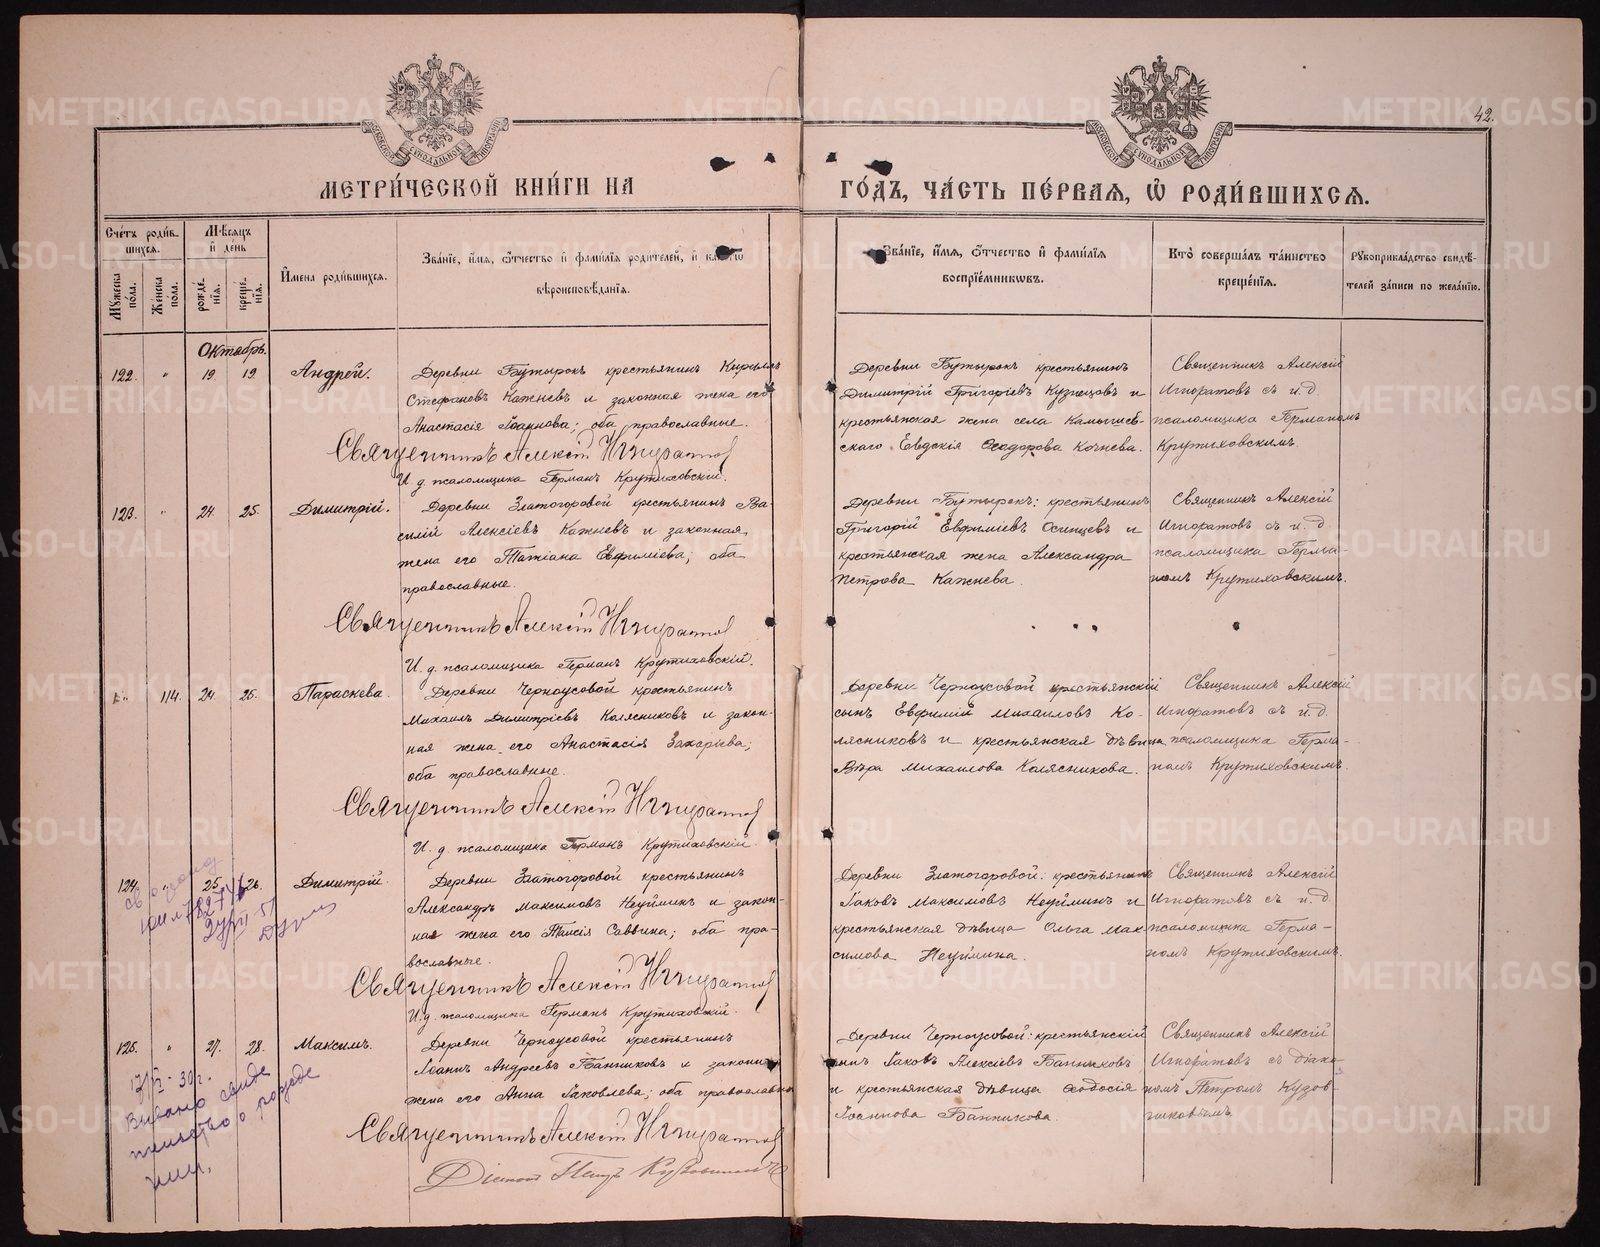 42.
МОСКОВСКОЙ СѴНОДАЛЬНОЙ ТИПОГРАФІИ
МОСКОВСКОЙ СѴНОДАЛЬНОЙ ТИПОГРАФІИ
МЕТРИ́ЧЕСКОЙ КНИ́ГИ НА
ГО́ДЪ, ЧА́СТЬ ПЕ́РВАѦ, Ѽ РОДИ́ВШИХСѦ.
Сче́тъ роди́в-
шихсѧ.
Мꙋжеска по́ла.
Же́нска по́ла.
Мѣсѧцъ и҆ де́нь
рожде́-
нїѧ.
креще́-
нїѧ.
И҆мена роди́вшихсѧ.
Зва́нїе, и҆́мѧ, ѻ҆́тчество и҆ фами́лїѧ роди́телей, и҆
вѣроисповѣ́данїѧ.
Зва́нїе, и҆́мѧ, ѻ҆́тчество и҆ фами́лїѧ
воспрїе́мниковъ.
Кто̀ соверша́лъ та́инство
креще́нїѧ.
Рꙋкоприкла́дство свидѣ́-
телей за́писи по жела́нїю.
Октябрь.
122. " 19 19 Андрей.
Деревни Бутырокъ крестьянинъ Кириллъ
Стефановъ Кажневъ и законная жена его
Анастасія Іоаннова; оба православные.
Священникъ Алексій Игноратовъ
И. д. псаломщика Германъ Крутиховскій.
Деревни Бутырокъ крестьянинъ
Димитрій Григоріевъ Кузнецовъ и
крестьянская жена села Камышев-
скаго Евдокія Ѳеодорова Кочнева.
Священникъ Алексій
Игноратовъ съ и. д.
псаломщика Германомъ
Крутиховскимъ.
123. " 24. 25. Димитрій.
Деревни Златогоровой крестьянинъ Ва-
силій Алексіевъ Кажневъ и законная
жена его Татіана Евфиміева; оба
православные.
Священникъ Алексій Игноратовъ
И. д. псаломщика Германъ Крутиховскій.
Деревни Бутырокъ: крестьянинъ
Григорій Евфиміевъ Осинцевъ и
крестьянская жена Александра
Петрова Кажнева.
Священникъ Алексій
Игноратовъ съ и. д.
псаломщика Герма-
номъ Крутиховскимъ.
" 114. 24. 25. Параскева.
Деревни Черноусовой крестьянинъ
Михаилъ Димитріевъ Колясниковъ и закон-
ная жена его Анастасія Захаріева;
оба православные.
Священникъ Алексій Игноратовъ
И. д. псаломщика Германъ Крутиховскій
Деревни Черноусовой крестьянскій
сынъ Евфимій Михаиловъ Ко-
лясниковъ и крестьянская дѣвица
Вѣра Михаилова Колясникова.
Священникъ Алексій
Игноратовъ съ и. д.
псаломщика Герма-
номъ Крутиховскимъ.
124. " 25. 26. Димитрій.
Деревни Златогоровой крестьянинъ
Александръ Максимовъ Неуйминъ и закон-
ная жена его Таисія Саввина; оба пра-
вославные.
Священникъ Алексій Игноратовъ
И. д. псаломщика Германъ Крутиховскій.
Деревни Златогоровой: крестьянинъ
Іаковъ Максимовъ Неуйминъ и
крестьянская дѣвица Ольга Мак-
симова Неуймина.
Священникъ Алексій
Игноратовъ съ и. д.
псаломщика Герма-
номъ Крутиховскимъ.
125. " 27. 28. Максимъ.
Деревни Черноусовой крестьянинъ
Іоаннъ Андреевъ Банниковъ и законная
жена его Анна Іаковлева; оба православные
Священникъ Алексій Игноратовъ
Діаконъ Петръ Кузовниковъ
Деревни Черноусовой: крестьянскій
сынъ Іаковъ Алексіевъ Банников
и крестьянская дѣвица Ѳеодосія
Іоаннова Банникова.
Священникъ Алексій
Игноратовъ съ діако-
номъ Петромъ Кузов-
никовымъ.
Выдано свиде
тельство о рожде
нии,
METRIKI.GASO-URAL.RU